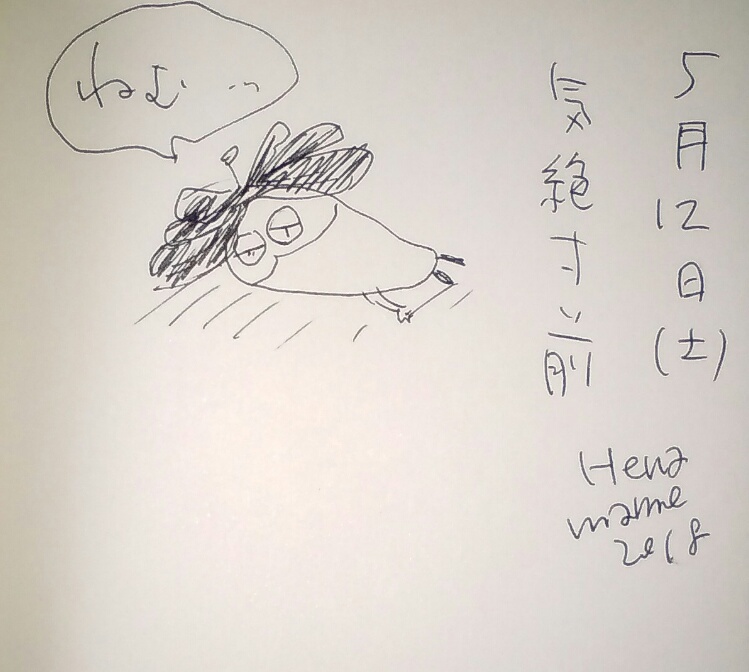 ねむ…
5月12日(土)
気絶寸前
Hena
mame
2018